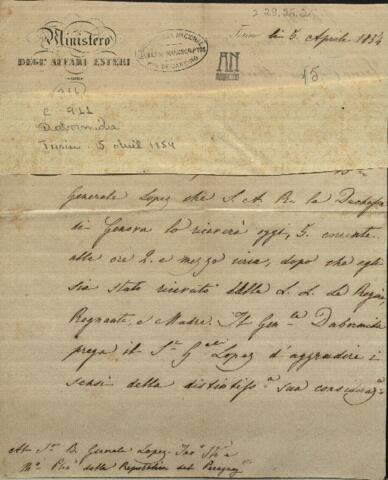 Ministero
DEGL' AFFARI ESTERI
Torino li 5. Aprile 1854
AN
15
C 911
Dabormida
Turin 5 abril 1854
Generale Lopez che S. A. R. la Duchessa
di Genova lo riceverà oggi, 5. corrente
alle ore 2. e mezzo circa, dopo che egli
sia stato ricevuto dalle L. L. le Regine
Regnante, e Madre. Il Gen.le Dabormida
prega il S.r G.ale Lopez d'aggradire i
sensi della distintiss.a sua consideraz.e
Al S.r B. Generale Lopez
della Repubblica del Paraguay